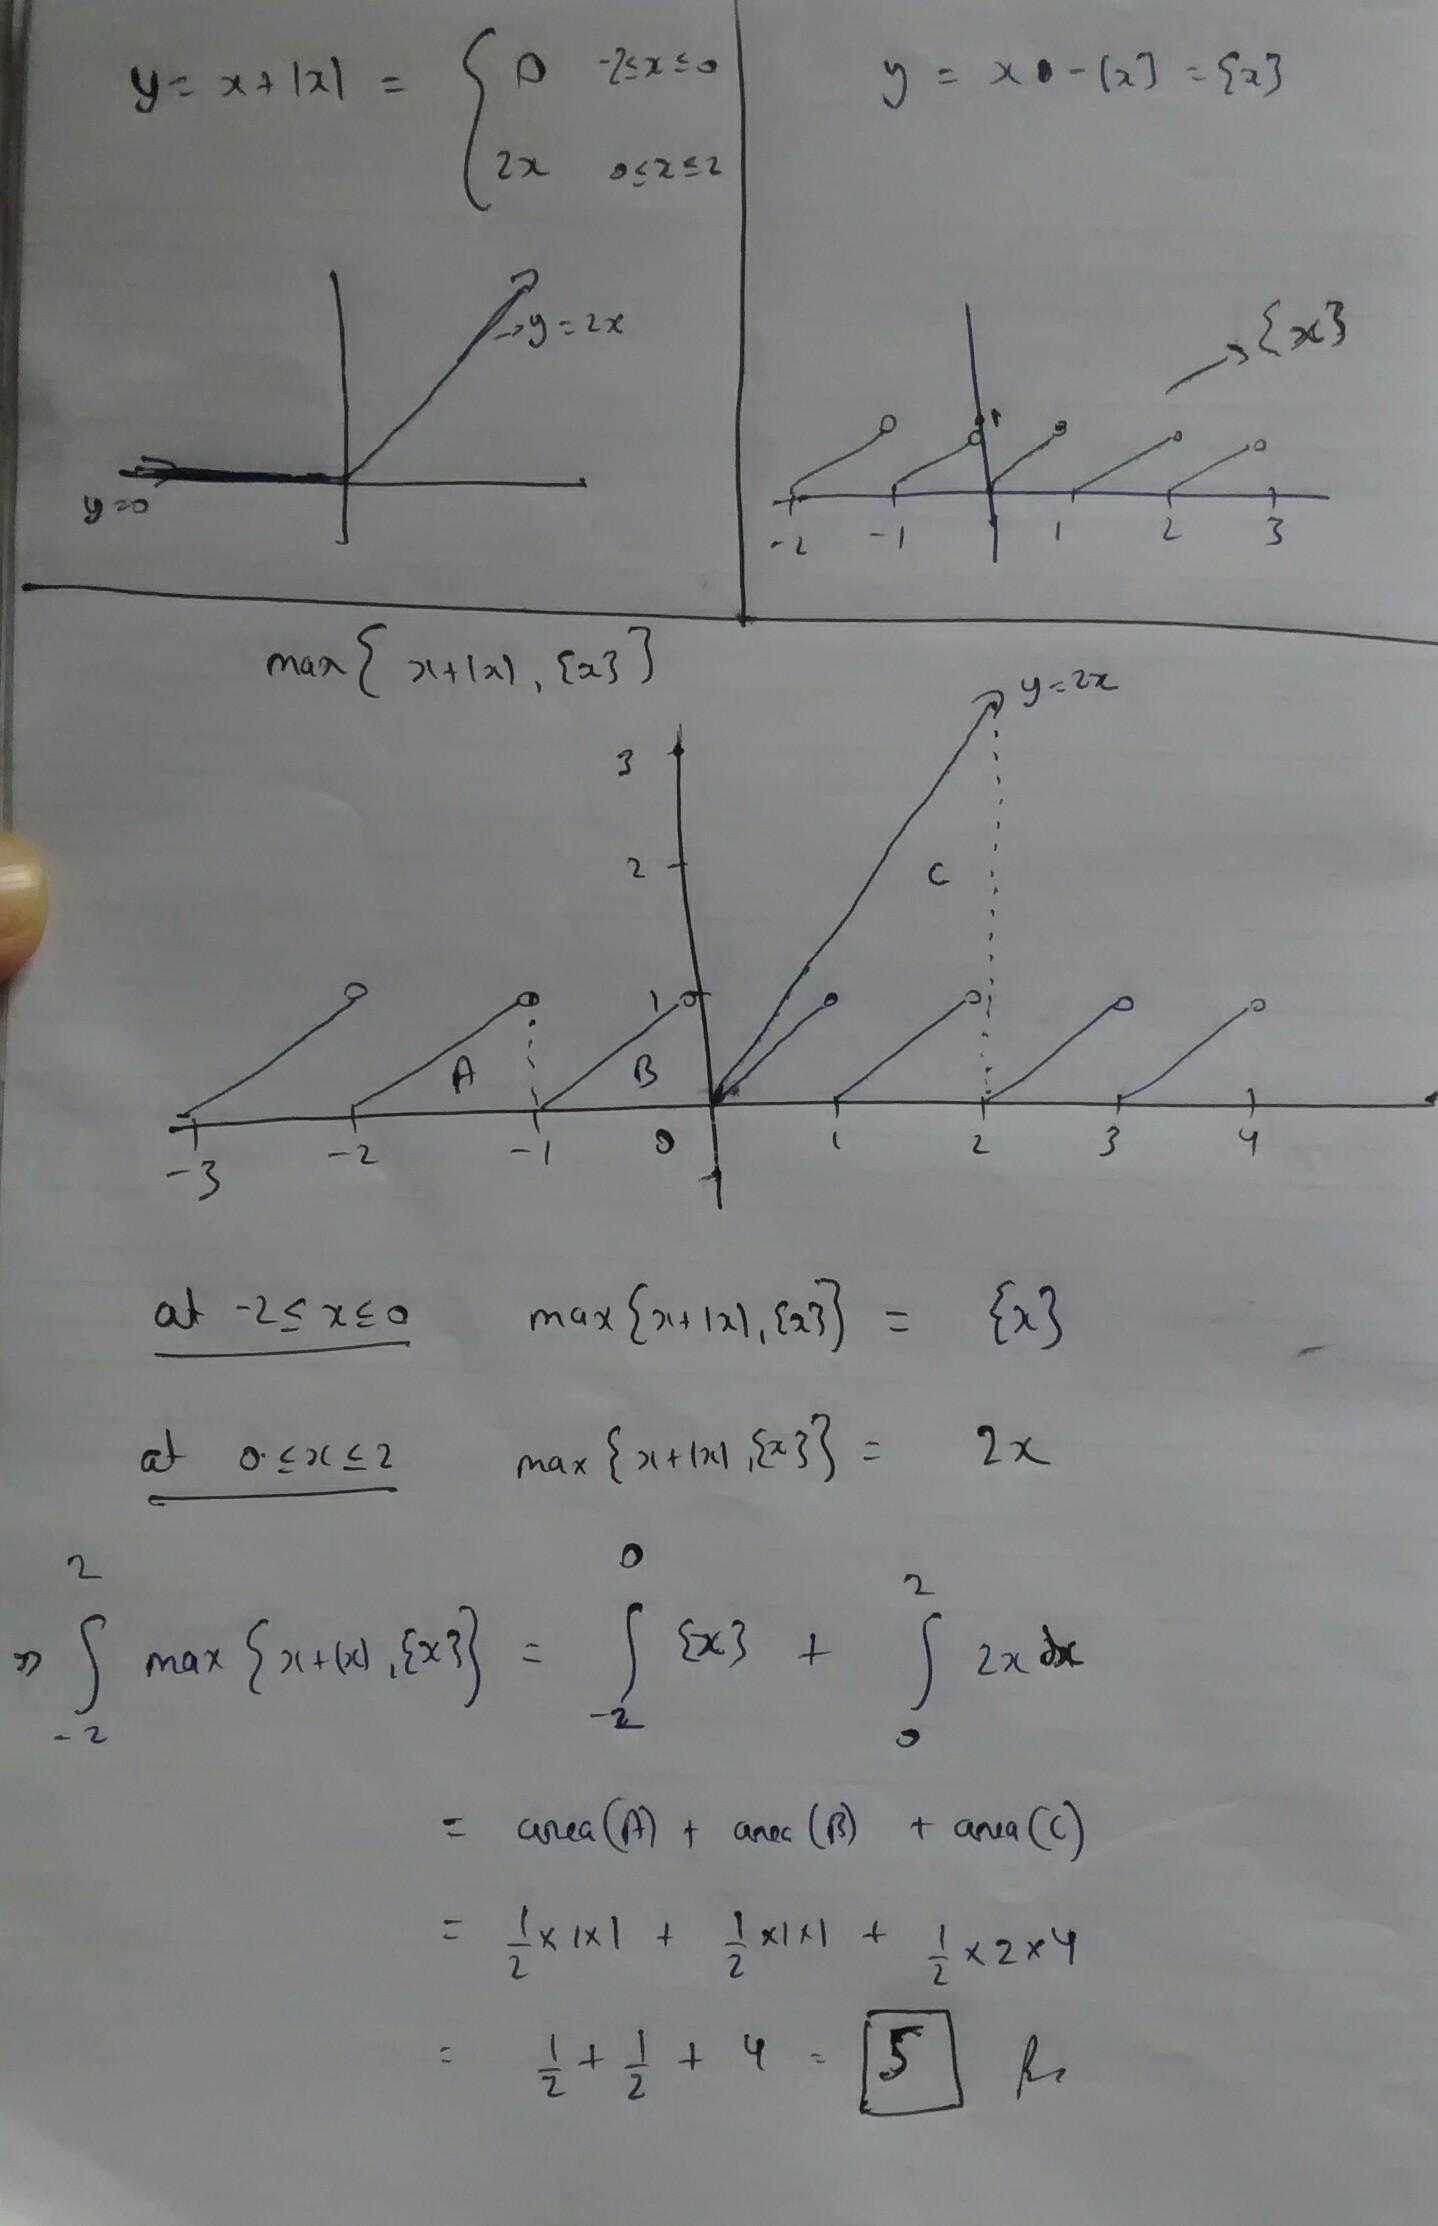 y = x + |x| = { 0 -2 ≤ x ≤ 0
2x 0 ≤ x ≤ 2
y = x - [x] = {x}
→ y = 2x
y = 0
→ {x}
1
-2 -1 1 2 3
max { x + |x|, {x} }
y = 2x
3
2
C
1
A B
-3 -2 -1 0 1 2 3 4
at -2 ≤ x ≤ 0 max { x + |x|, {x} } = {x}
at 0 ≤ x ≤ 2 max { x + |x|, {x} } = 2x
⇒ ∫_{-2}^{2} max { x + |x|, {x} } = ∫_{-2}^{0} {x} + ∫_{0}^{2} 2x dx
= area(A) + area(B) + area(C)
= 1/2 × 1 × 1 + 1/2 × 1 × 1 + 1/2 × 2 × 4
= 1/2 + 1/2 + 4 = 5